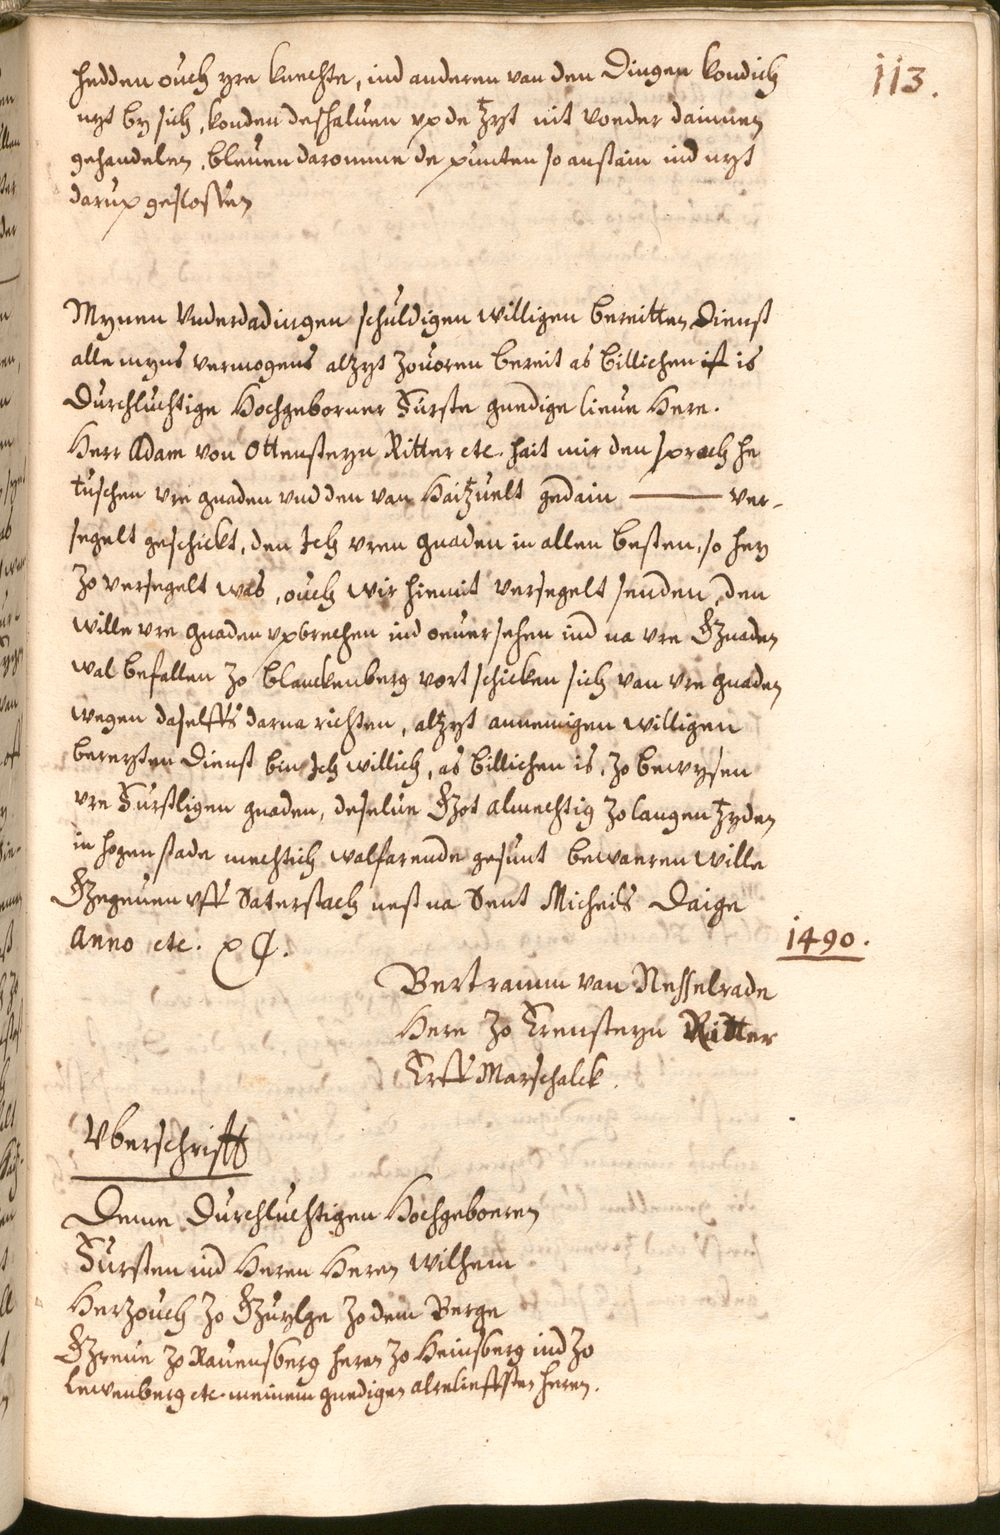 113.
hedden oůch yre knechte, ind anderen van den Dingen kondich
nyt by sich, konden deshaluen vp de Zyt nit voeder dainnen
gehandelen, bleuen daromme de puncten so anstain ind nyt
darup geslossen
Mynen Vnderdadingen schůldigen willigen bereitten Dienst
alle myns vermogens alzyt zouoren bereit as billichen ist is
Dürchlůchtige Hochgeborner Fůrste gnedige lieue Here.
Herr Adam von Ottensteyn Ritter etc. hait mir den sproch he
tůschen vre gnaden vnd den van Haitzuelt gedain ——— ver-
segelt geschickt, den Ich vren gnaden in allen besten, so hey
zo versegelt was, oůch wir hiemit versegelt senden, den
wille vre gnaden vpbrechen ind oeuersehen ind na vre Gnaden
wal befallen zo Blanckenberg vort schicken sich van vre gnaden
wegen daselffs darna richten, altzyt annemigen willigen
bereyten Dienst bin Ich willich, as billichen is, zo bewysen
vre Fůrstligen gnaden, deselue Got almechtig zo langen Zyden
in hogen stade mechtich walfarende gesunt bewaeren wille
Gegeuen vff Saterstach nest na Sent Micheils Daige
Anno etc. XC.
1490.
Bertramm van Nesselrade
Here zo Erensteyn Ritter
Erff Marschalck.
Vberschrifft
Deme Durchluchtigen Hochgeboeren
Fůrsten ind Heren Heren Wilhem
Herzouch zo Guylge zo dem Berge
Greue zo Rauensberg heren zo Heinsberg ind zo
Lewenberg etc. meinem gnedigen alreliefsten heren.